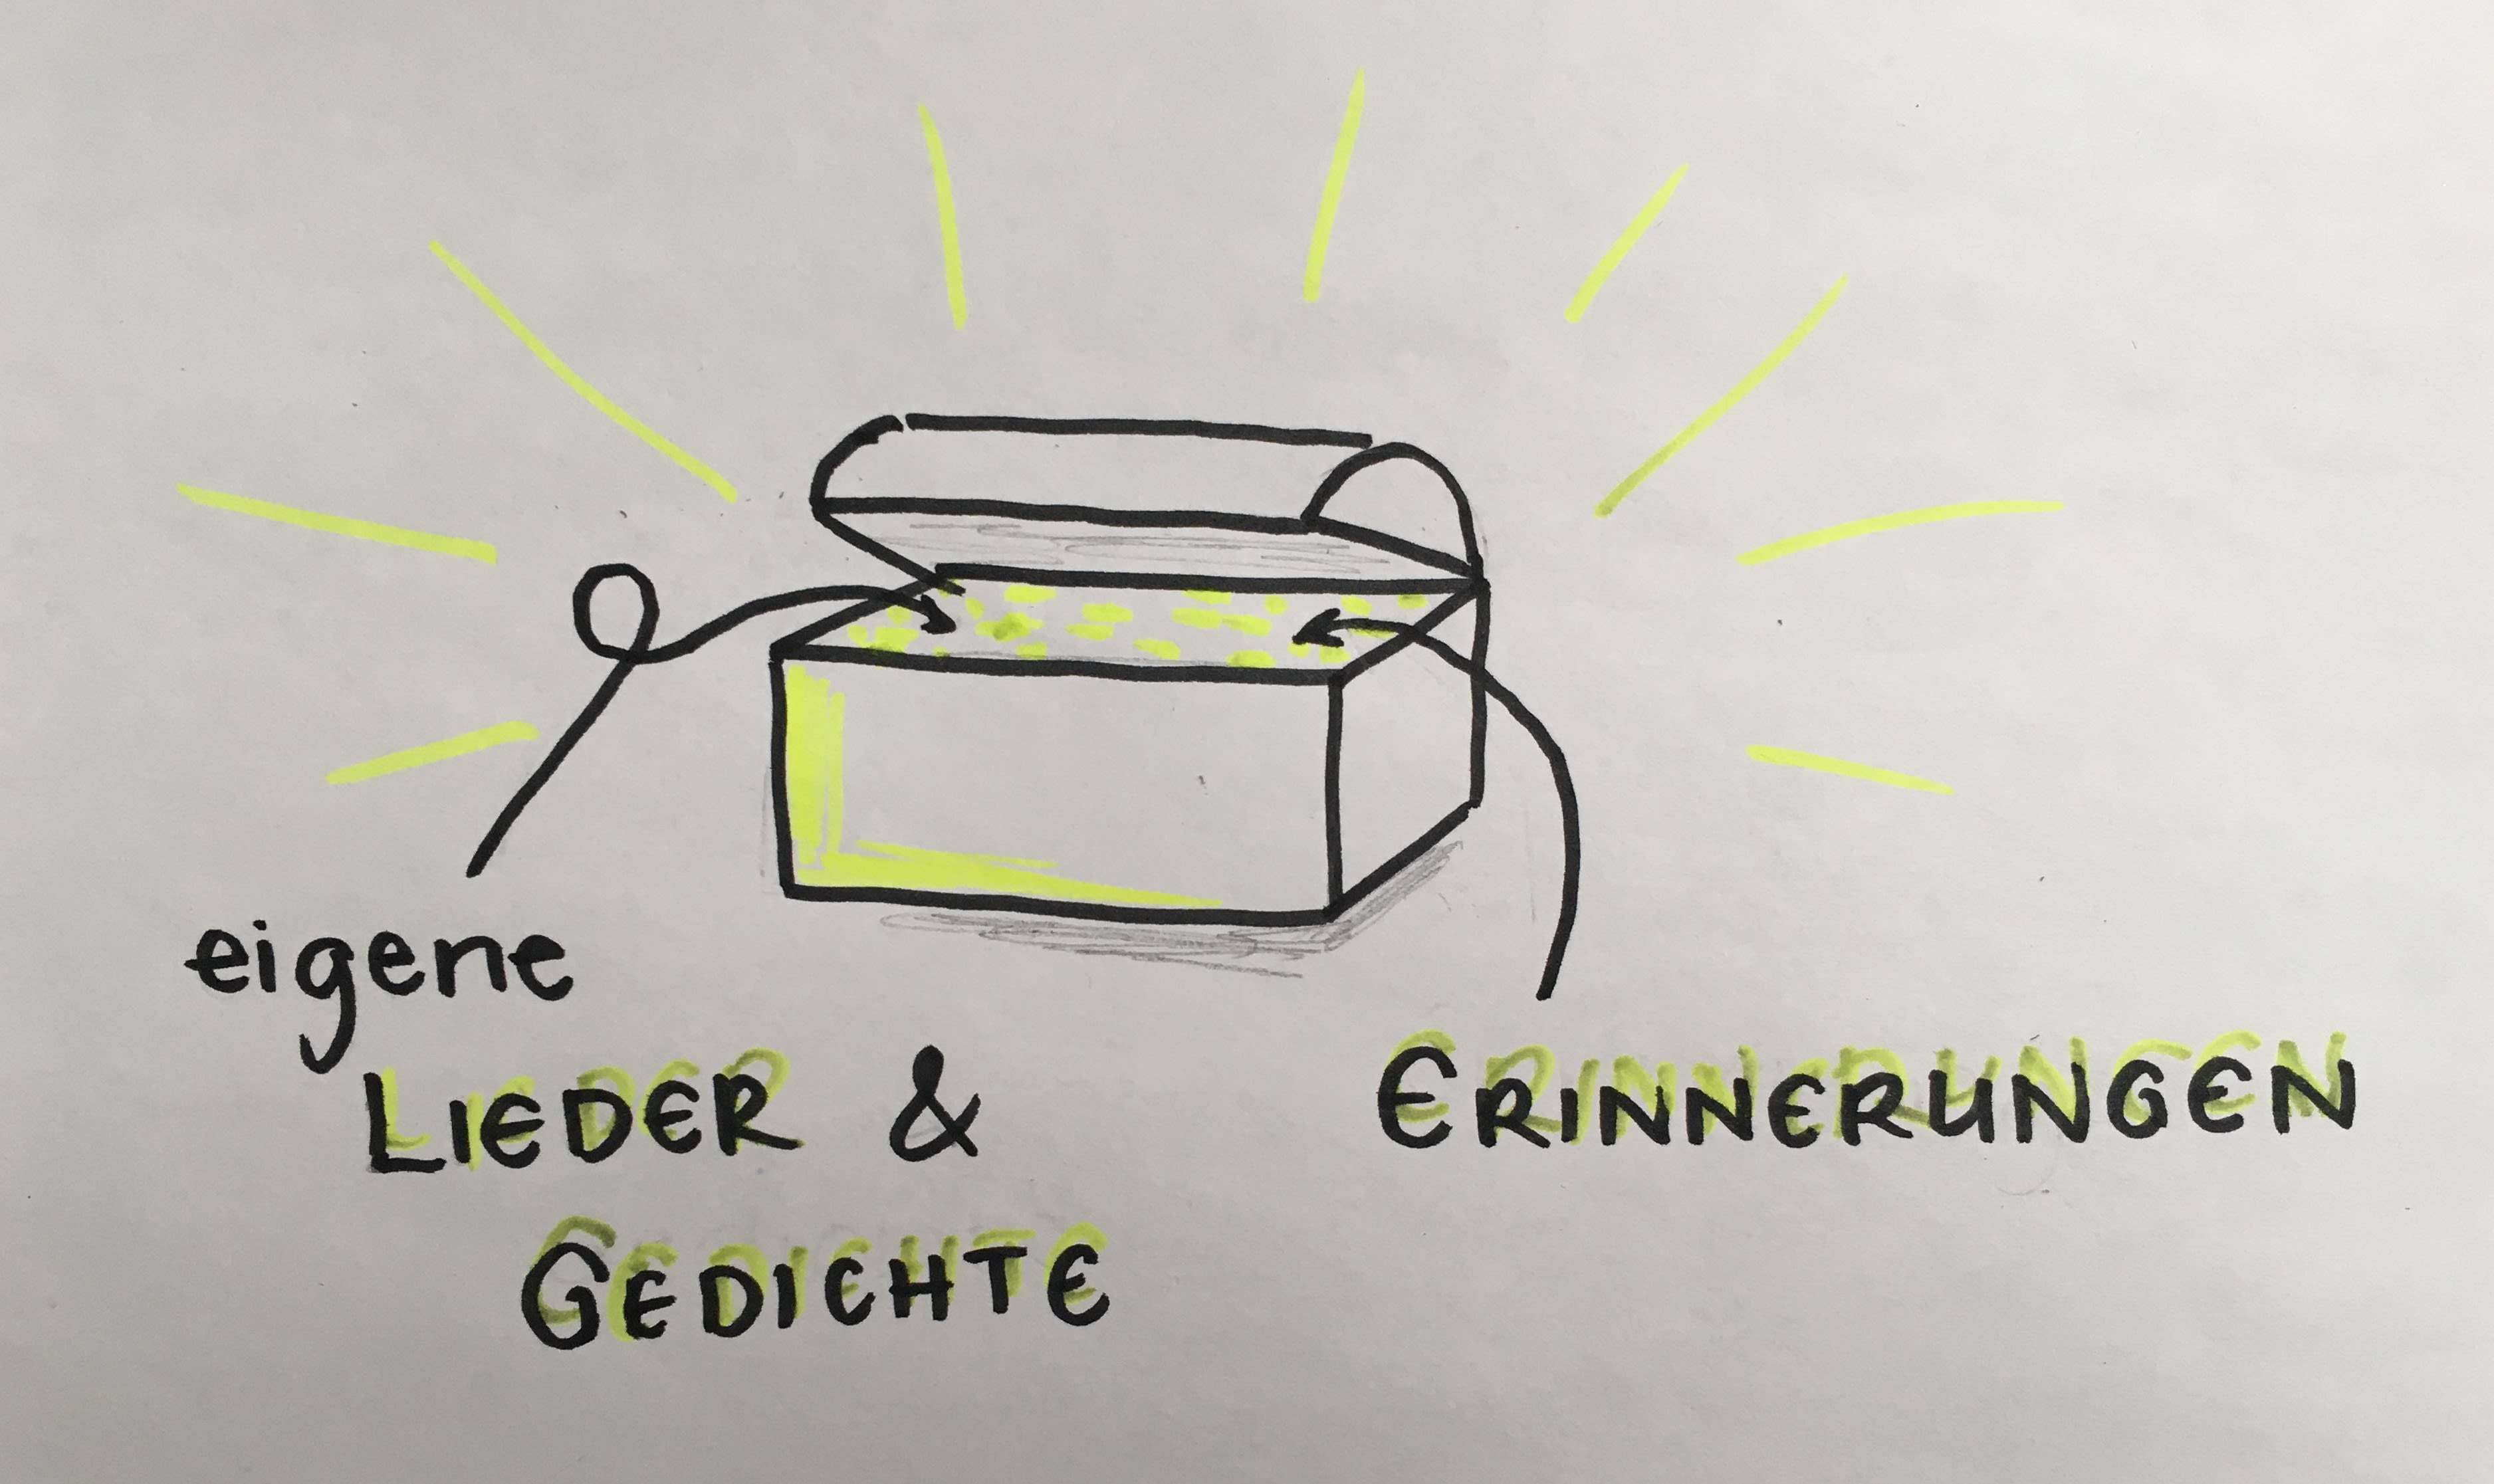 eigene
LIEDER &
GEDICHTE
ERINNERUNGEN